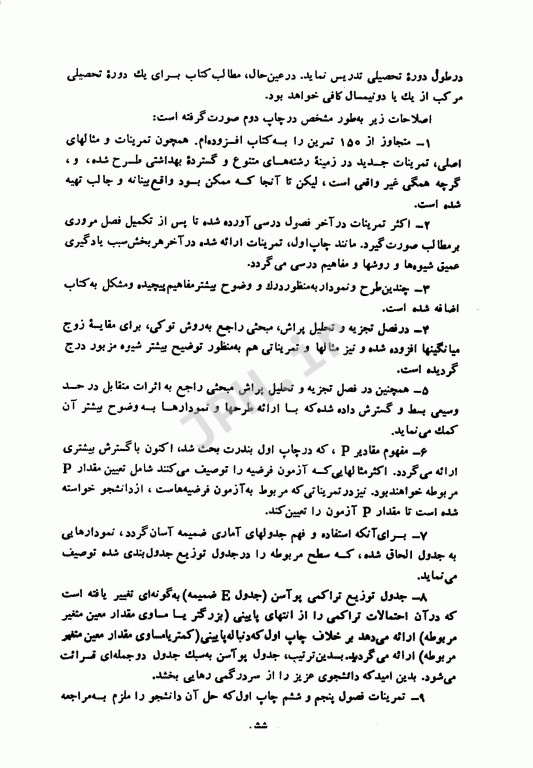 درطول دورهٔ تحصیلی تدریس نماید. درعین‌حال، مطالب کتاب بـرای یك دورهٔ تحصیلی
مرکب از یك یا دونیمسال کافی خواهد بود.
اصلاحات زیر به‌طور مشخص درچاپ دوم صورت‌گرفته است:
۱- متجاوز از ۱۵۰ تمرین را بـه‌کتاب افزوده‌ام. همچون تمرینات و مثالهای
اصلی، تمرینات جدید در زمینهٔ رشته‌هـای متنوع و گستردهٔ بهداشتی طـرح شده، و،
گرچه همگی غیر واقعی است، لیکن تا آنجا کـه ممکن بـود واقع‌بینانه و جالب تهیه
شده است.
۲- اکثر تمرینات درآخر فصول درسی آورده شده تا پس از تکمیل فصل مروری
برمطالب صورت‌گیرد. مانند چاپ‌اول، تمرینات ارائه شده درآخر هربخش‌سبب یادگیری
عمیق شیوه‌ها و روشها و مفاهیم درسی می‌گردد.
۳- چندین‌طرح و نمودار به‌منظوردرك و وضوح بیشترمفاهیم‌پیچیده ومشکل به‌کتاب
اضافه شده است.
۴- درفصل تجزیه و تحلیل پراش، مبحثی راجع به‌روش توکی، برای مقایسهٔ زوج
میانگینها افزوده شده و نیز مثالها و تمریناتی هم به‌منظور توضیح بیشتر شیوه مزبور درج
گردیده است.
۵- همچنین در فصل تجزیه و تحلیل پراش مبحثی راجع به اثرات متقابل در حـد
وسیعی بسط و گسترش داده شده‌که بـا ارائه طرحها و نمودارهـا بـه وضوح بیشتر آن
کمك می‌نماید.
۶- مفهوم مقادیر P ، که درچاپ اول بندرت بحث شد، اکنون باگسترش بیشتری
ارائه می‌گردد. اکثرمثالهایی‌کـه آزمون فرضیه را توصیف می‌کنند شامل تعیین مقدار P
مربوطه خواهندبود. نیزدرتمریناتی‌که مربوط به‌آزمون فرضیه‌هاست ، ازدانشجو خواسته
شده است تا مقدار P آزمون را تعیین‌کند.
۷- بـرای‌آنکه استفاده و فهم جدولهای آماری ضمیمه آسان‌گردد، نمودارهایی
به جدول الحاق شده، کـه سطح مربوطه را درجدول توزیع جدول‌بندی شده توصیف
می‌نماید.
۸- جدول توزیـع تراکمی پوآسن (جدول E ضمیمه) به‌گونه‌ای تغییر یافته است
که درآن احتمالات تراکمی را از انتهای پایینی (بزرگتر یـا مساوی مقدار معین متغیر
مربوطه) ارائه می‌دهد بر خلاف چاپ اول‌که‌دنباله‌پایینی(کمتریامساوی مقدار معین متغیر
مربوطه) ارائه می‌گردید. بـدین‌ترتیب، جدول پوآسن به‌سبك جدول دوجمله‌ای قـرائت
می‌شود. بدین امیدکه دانشجوی عزیز را از سردرگمی رهایی بخشد.
۹- تمرینات فصول پنجم و ششم چاپ اول‌که حل آن دانشجو را ملزم بـه‌مراجعه